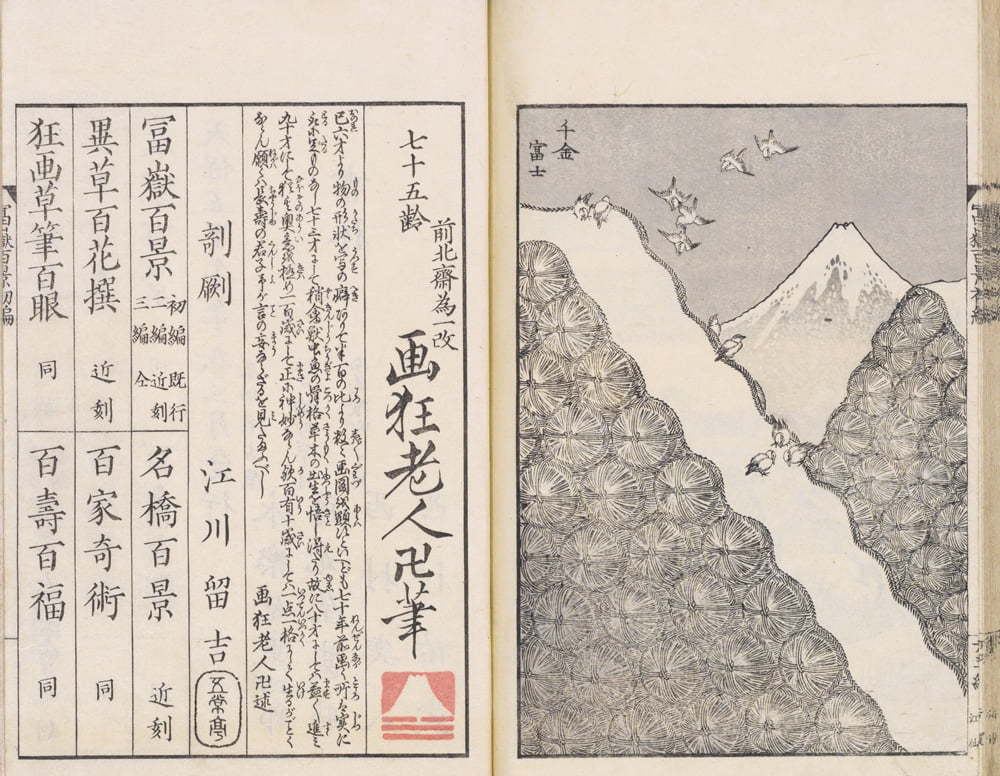 千金
富士
七十五齢
前北斎為一改
画狂老人卍筆
己六才より物の形状を写の癖ありて半百の比より数々画図を顕すといへども七十年前画く所は実に
取に足ものなし七十三才にして稍禽獣虫魚の骨格草木の出生を悟し得たり故に八十才にしては益々進み
九十才にして猶其奥意を極め一百歳にして正に神妙ならん歟百有十歳にしては一点一格にして生るがごとく
ならん願くは長寿の君子予が言の妄ならざるを見たまふべし
画狂老人卍述
剞劂 江川留吉 五常亭
冨嶽百景 初編既行 二編近刻 三編仝
名橋百景 近刻
異草百花撰 近刻
百家奇術 同
狂画草筆百眼 同
百壽百福 同
富嶽百景初編